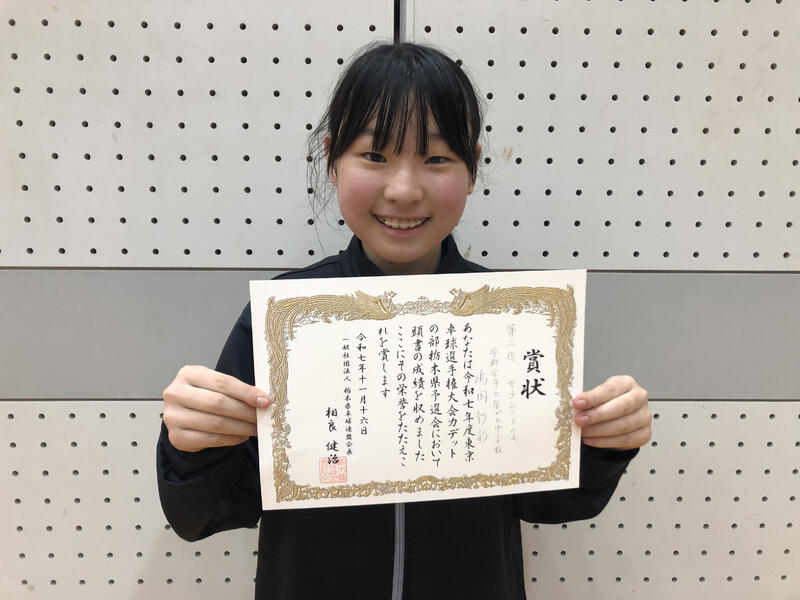 賞状
第三位 女子シングルス
宇都宮市立星が丘中学校
あなたは令和七年度東京
卓球選手権大会カデット
の部栃木県予選会において
頭書の成績を収めました
ここにその栄誉をたたえこ
れを賞します
令和七年十一月十六日
一般社団法人 栃木県卓球連盟会長
相良 健治